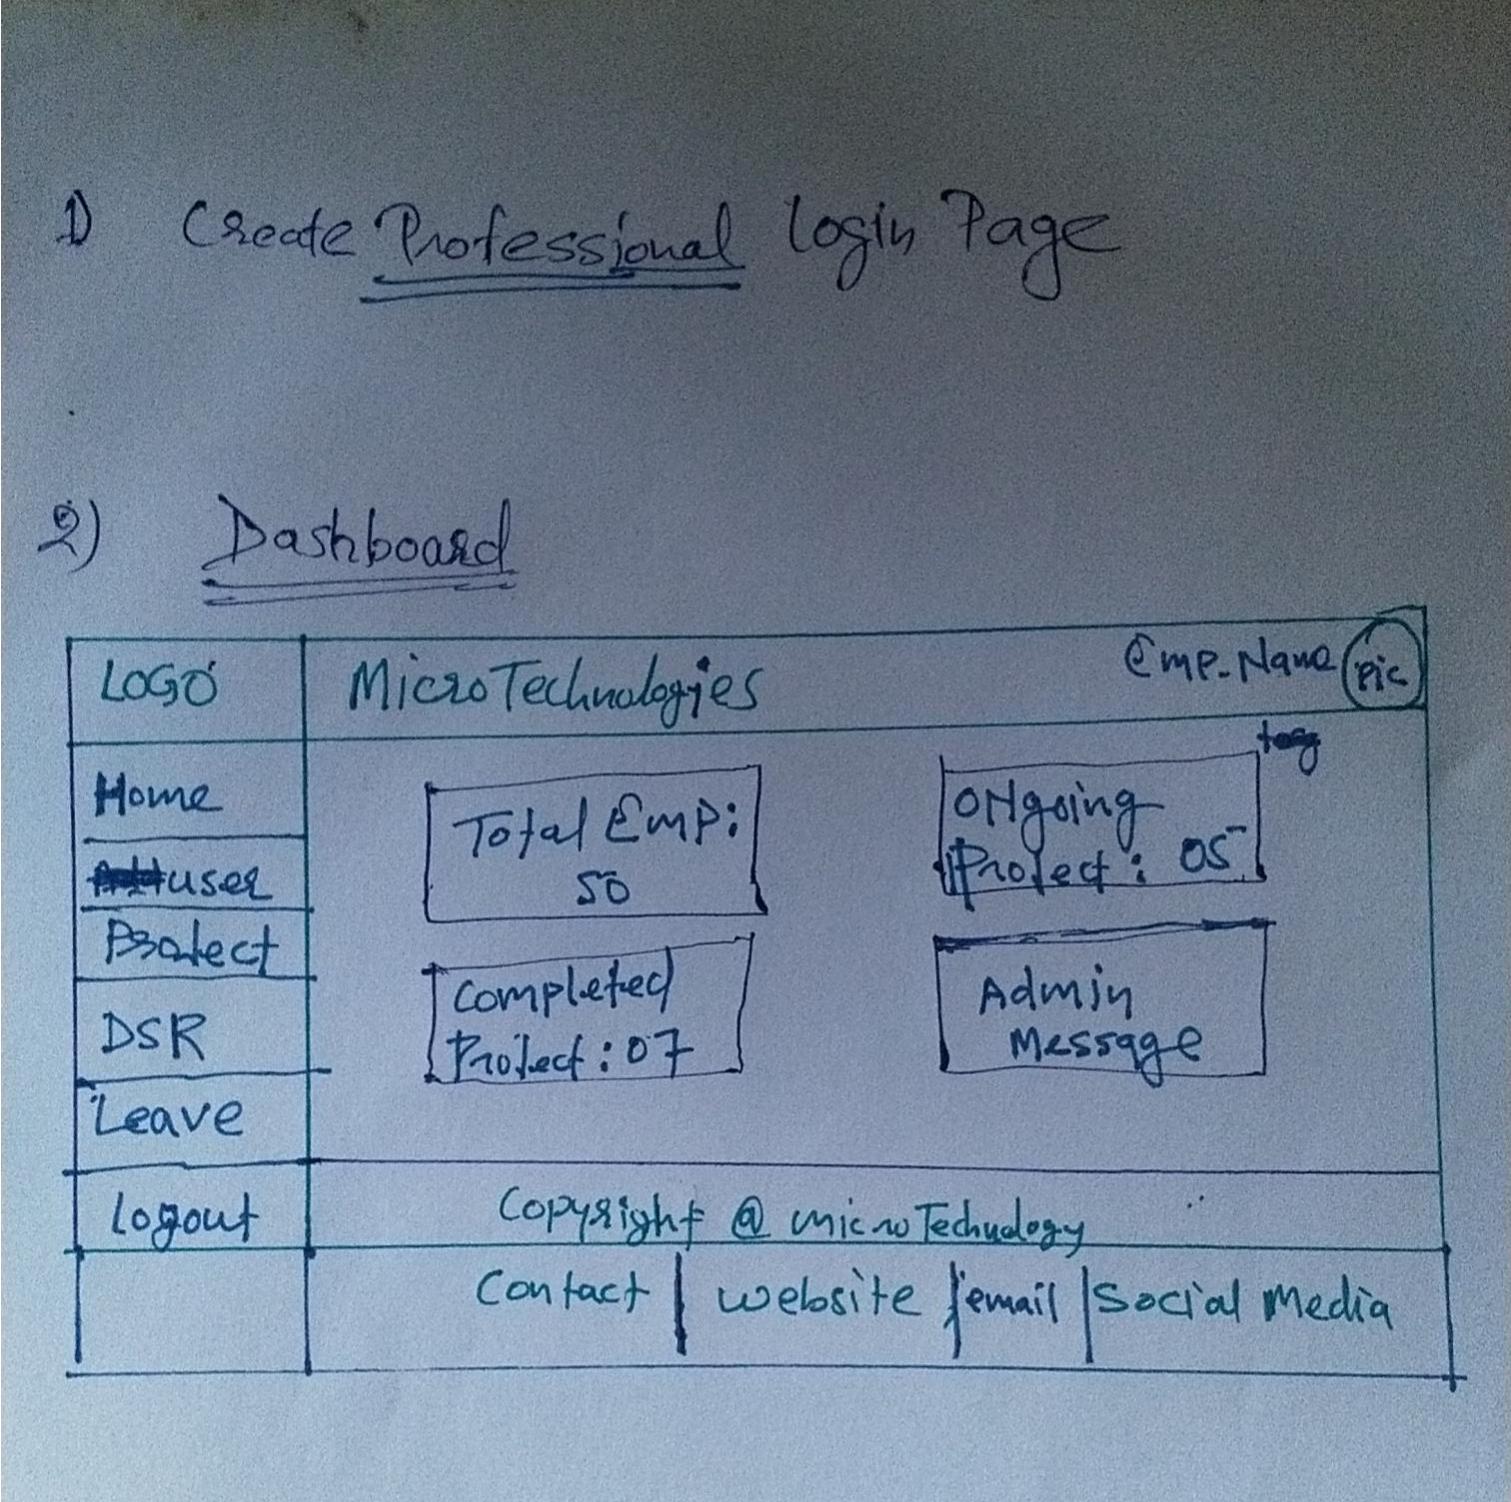 1) Create Professional login Page
2) Dashboard
LOGO
MicroTechnologies
Emp.Name
Pic
Home
user
Project
DSR
Leave
Logout
Total Emp:
50
ONgoing
Project: 05
Completed
Project: 07
Admin
Message
Copyright @ micro Technology
Contact | website | email | Social Media